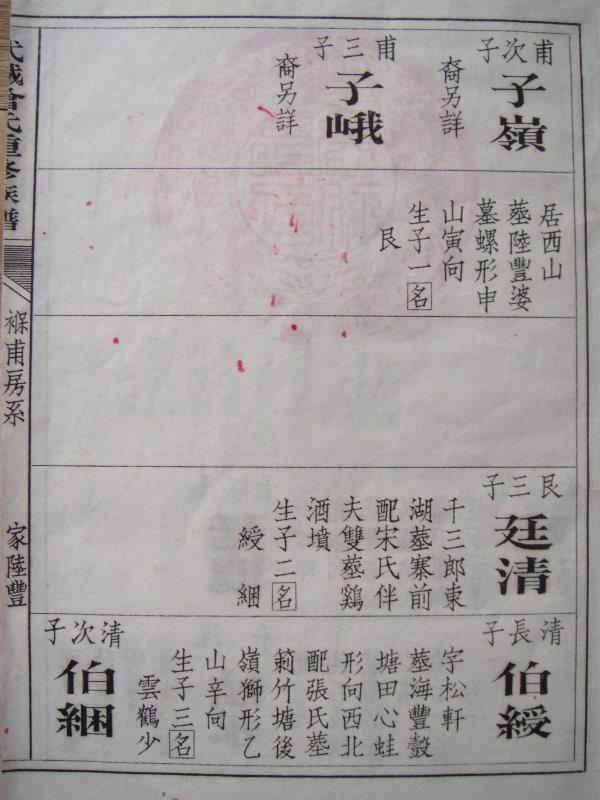 甫次子
子嶺
裔另詳
甫三子
子峨
裔另詳
居西山
塟陸豐婆
墓螺形申
山寅向
生子一名
艮
艮三子
廷清
千三郎東
湖塟寨前
配宋氏伴
夫雙塟鷄
酒墳
生子二名
綬 綑
清長子
伯綬
字松軒
塟海豐㲉
塘田心蛙
形向西北
配張氏塟
箣竹塘後
嶺獅形乙
山辛向
生子三名
雲鶴少
清次子
伯綑
武城曾氏重修族譜
褓甫房系
家陸豐